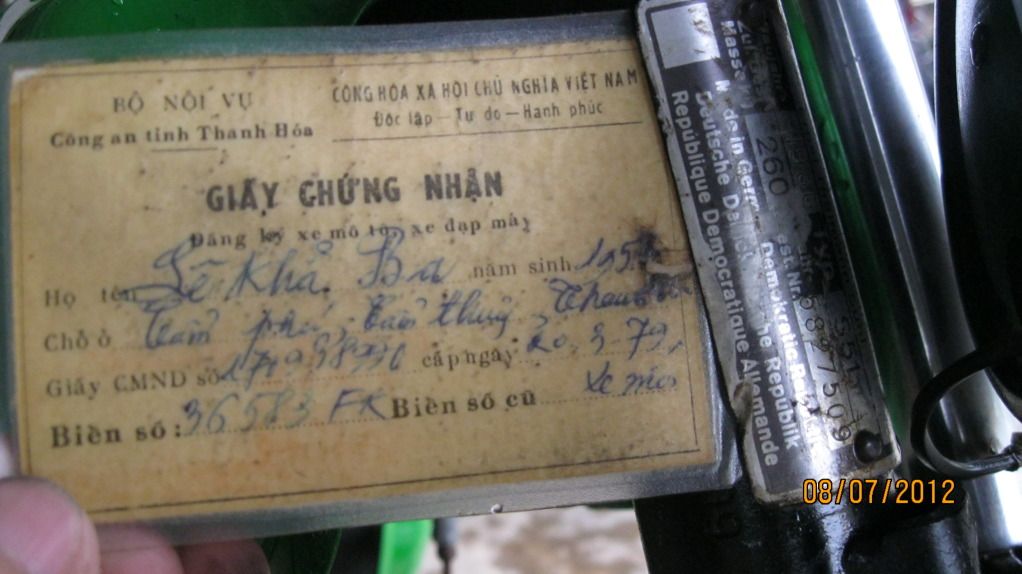 BỘ NỘI VỤ
Công an tỉnh Thanh Hóa
CỘNG HÒA XÃ HỘI CHỦ NGHĨA VIỆT NAM
Độc lập — Tự do — Hạnh phúc
GIẤY CHỨNG NHẬN
Đăng ký xe mô tô, xe đạp máy
Họ tên Lê Khả Ba năm sinh 195
Chỗ ở Cẩm phú, Cẩm thủy, Thanh
Giấy CMND số cấp ngày 20.3.79
Biển số: 36583 FK Biển số cũ xe mới
Masse 260
Made in
Deutsche Demokratische Republik
République Democratique Allemande
08/07/2012